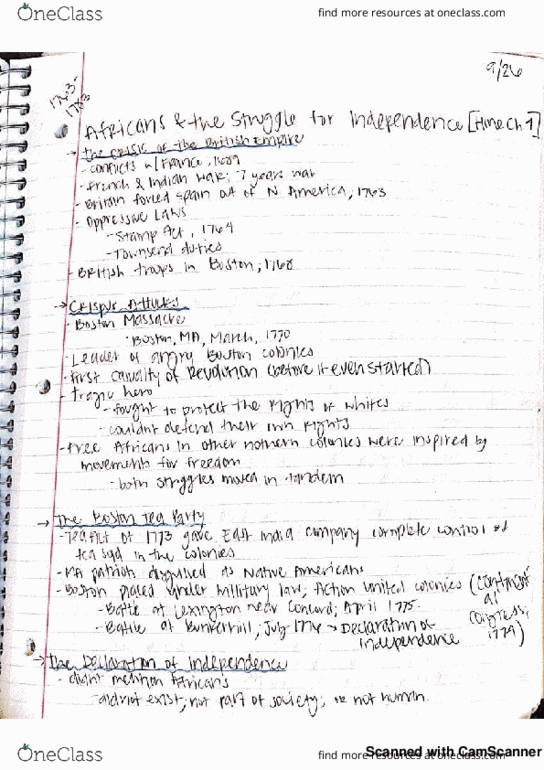 OneClass
find more resources at oneclass.com
9/26
1763-
1783
Africans & the Struggle for Independence [Hine Ch 4]
→ The Crisis of the British Empire
- conflicts w/ France, 1689
- French & Indian War; 7 years war
- Britain forced Spain out of N America, 1763
- Oppressive Laws
- Stamp Act, 1764
- Townsend duties
- British troops in Boston, 1768
→ Crispus Attucks
- Boston Massacre
· Boston, MA, March, 1770
- Leader of angry Boston colonies
- First casualty of Revolution (before it even started)
- tragic hero
- fought to protect the rights of whites
- couldnt defend their own rights
- free Africans in other nothern colonies were inspired by
movements for freedom
- both struggles moved in tandem
→ The Boston Tea Party
- Tea Act of 1773 gave East India company complete control of
tea in the colonies
- MA patriots disguised as Native Americans
- Boston placed under military law; Action united colonies (Continental
Congress,
1774)
- Battle at Lexington near Concord; April 1775
- Battle at Bunkerhill; July 1776 → Declaration of
Independence
→ The Declaration of Independence
- didnt mention Africans
- did not exist; not part of society; or not human.
OneClass
find more resources at oneclass.com
Scanned with CamScanner